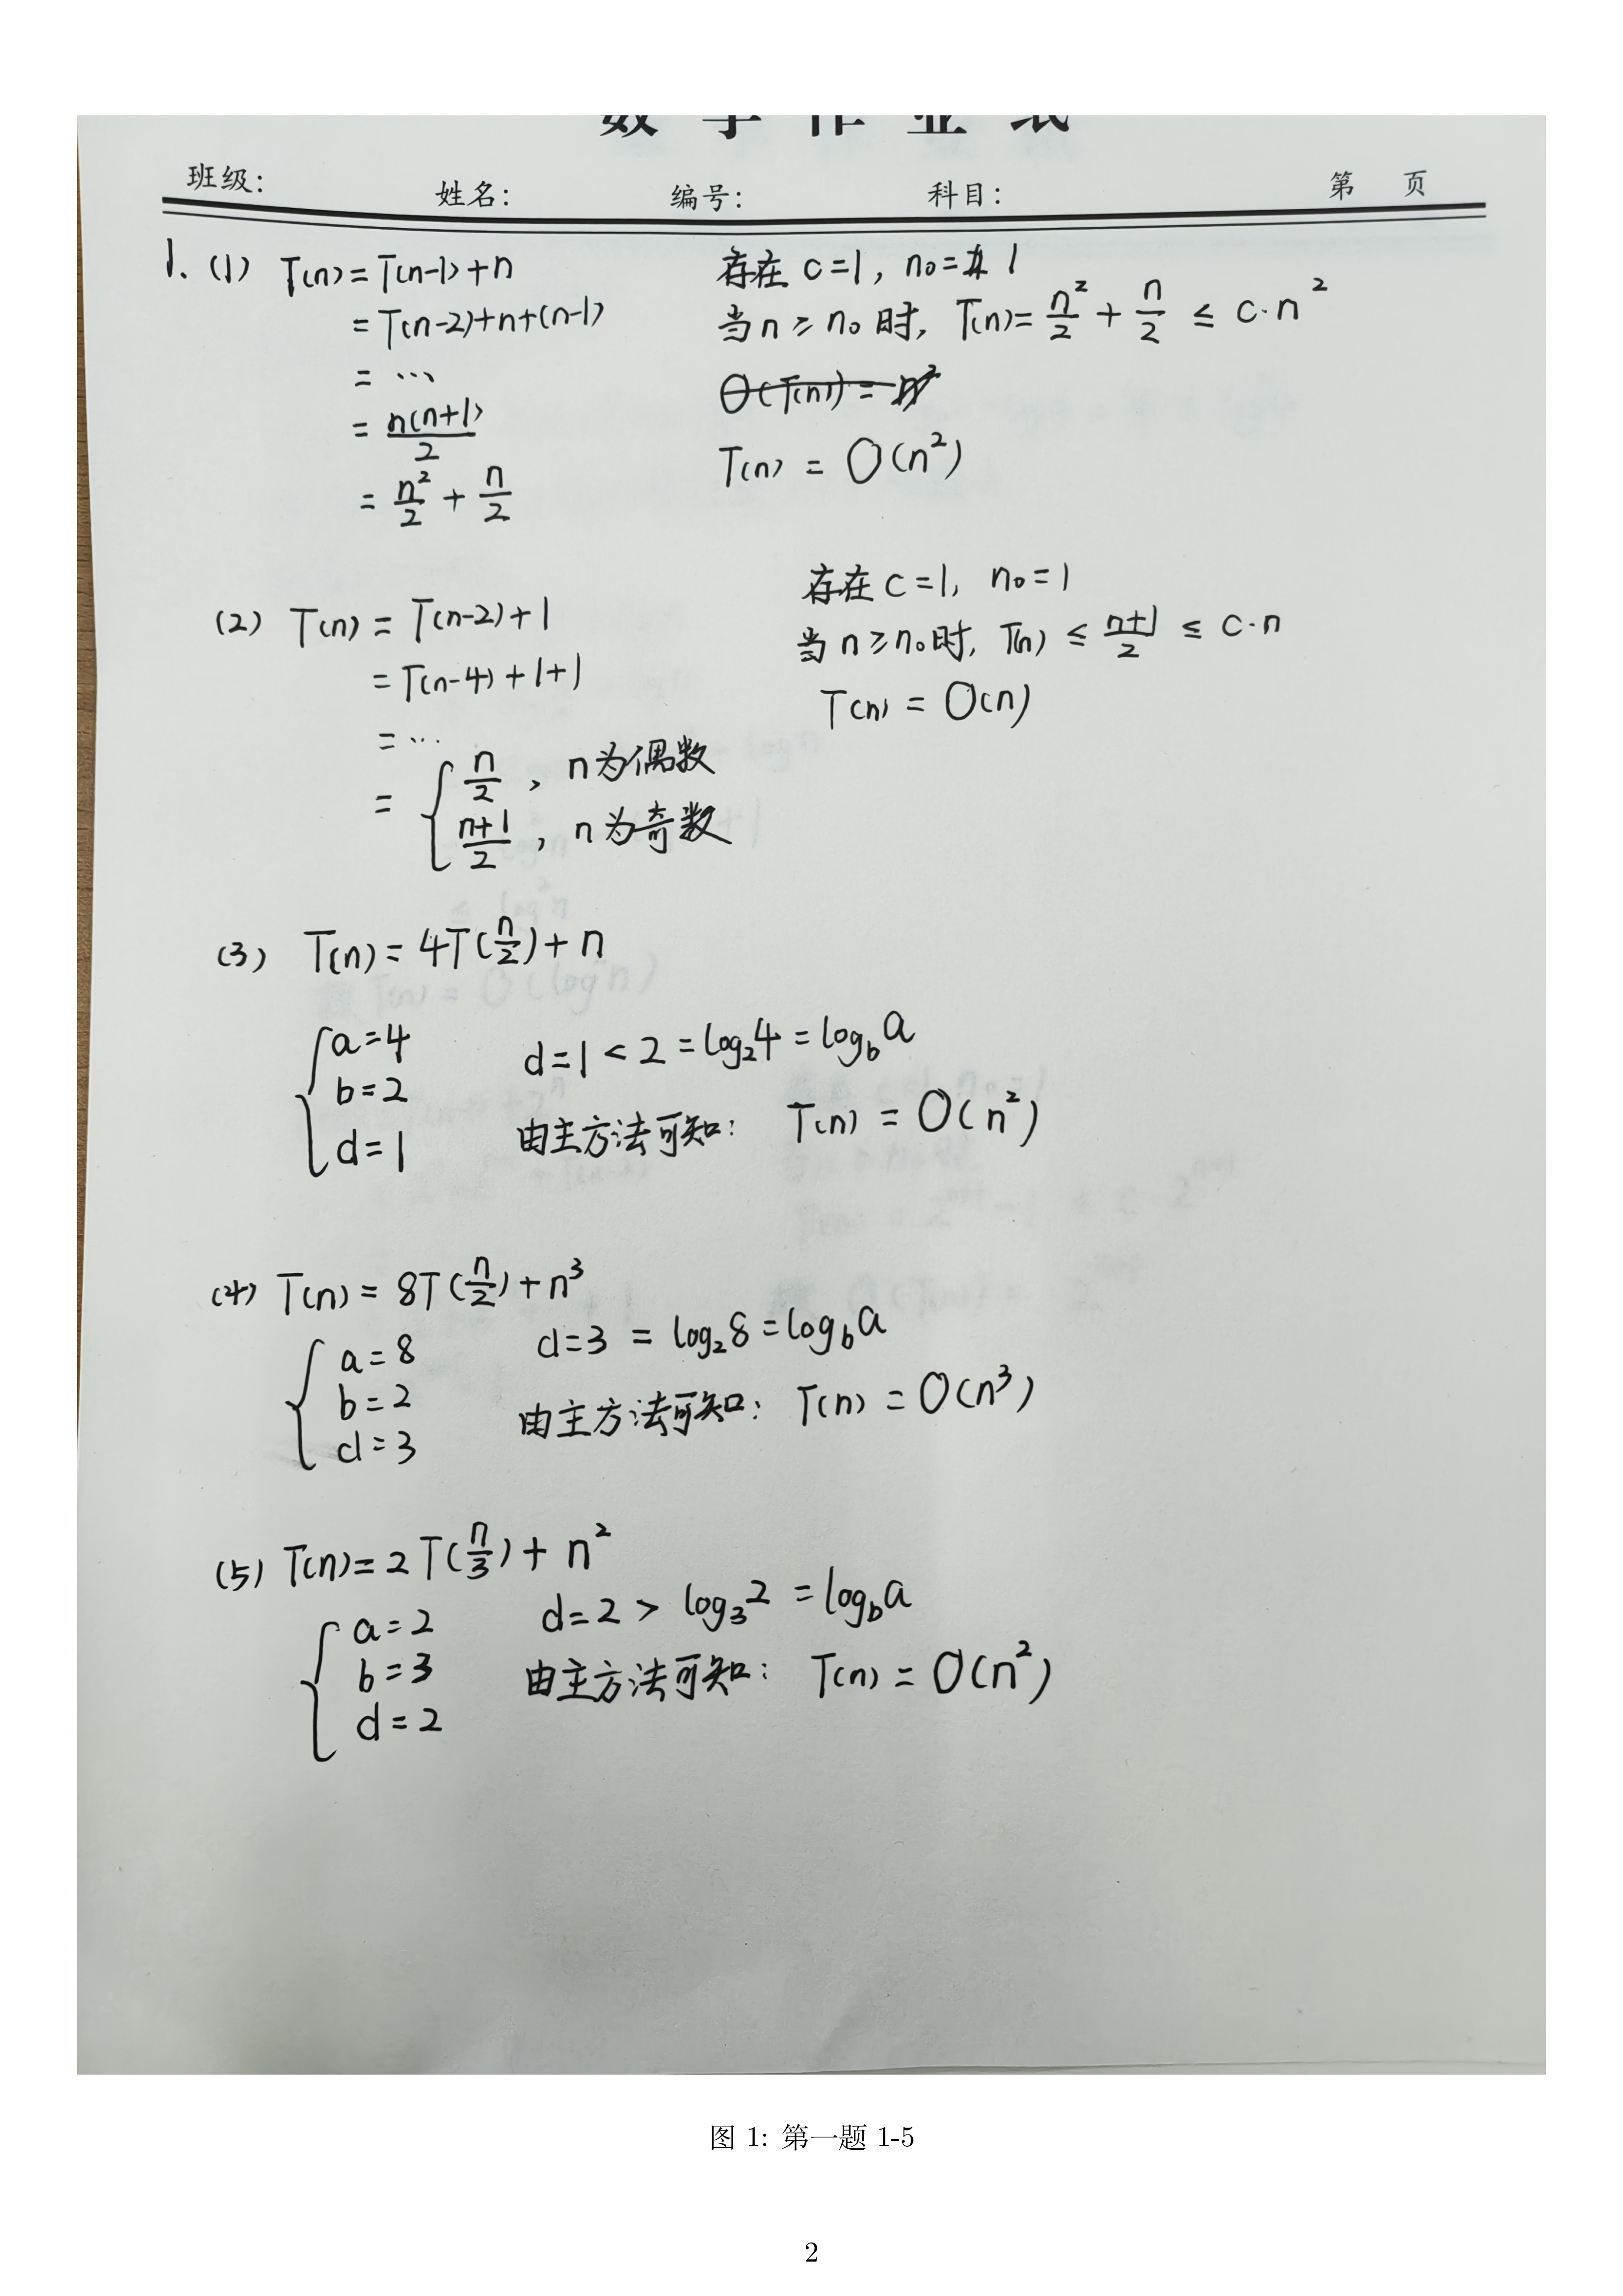 数学作业纸
班级: 姓名: 编号: 科目: 第 页
1. (1) T(n) = T(n-1) + n
= T(n-2) + n + (n-1)
= ...
= n(n+1)/2
= n²/2 + n/2
存在 c = 1, n₀ = 1
当 n ≥ n₀ 时, T(n) = n²/2 + n/2 ≤ c·n²
O(T(n)) = n²
T(n) = O(n²)
(2) T(n) = T(n-2) + 1
= T(n-4) + 1 + 1
= ...
= { n/2 , n 为偶数
(n+1)/2 , n 为奇数
存在 c = 1, n₀ = 1
当 n ≥ n₀ 时, T(n) ≤ (n+1)/2 ≤ c·n
T(n) = O(n)
(3) T(n) = 4T(n/2) + n
{ a = 4
b = 2
d = 1
d = 1 < 2 = log₂4 = log_b a
由主方法可知: T(n) = O(n²)
(4) T(n) = 8T(n/2) + n³
{ a = 8
b = 2
d = 3
d = 3 = log₂8 = log_b a
由主方法可知: T(n) = O(n³)
(5) T(n) = 2T(n/3) + n²
{ a = 2
b = 3
d = 2
d = 2 > log₃2 = log_b a
由主方法可知: T(n) = O(n²)
图 1: 第一题 1-5
2